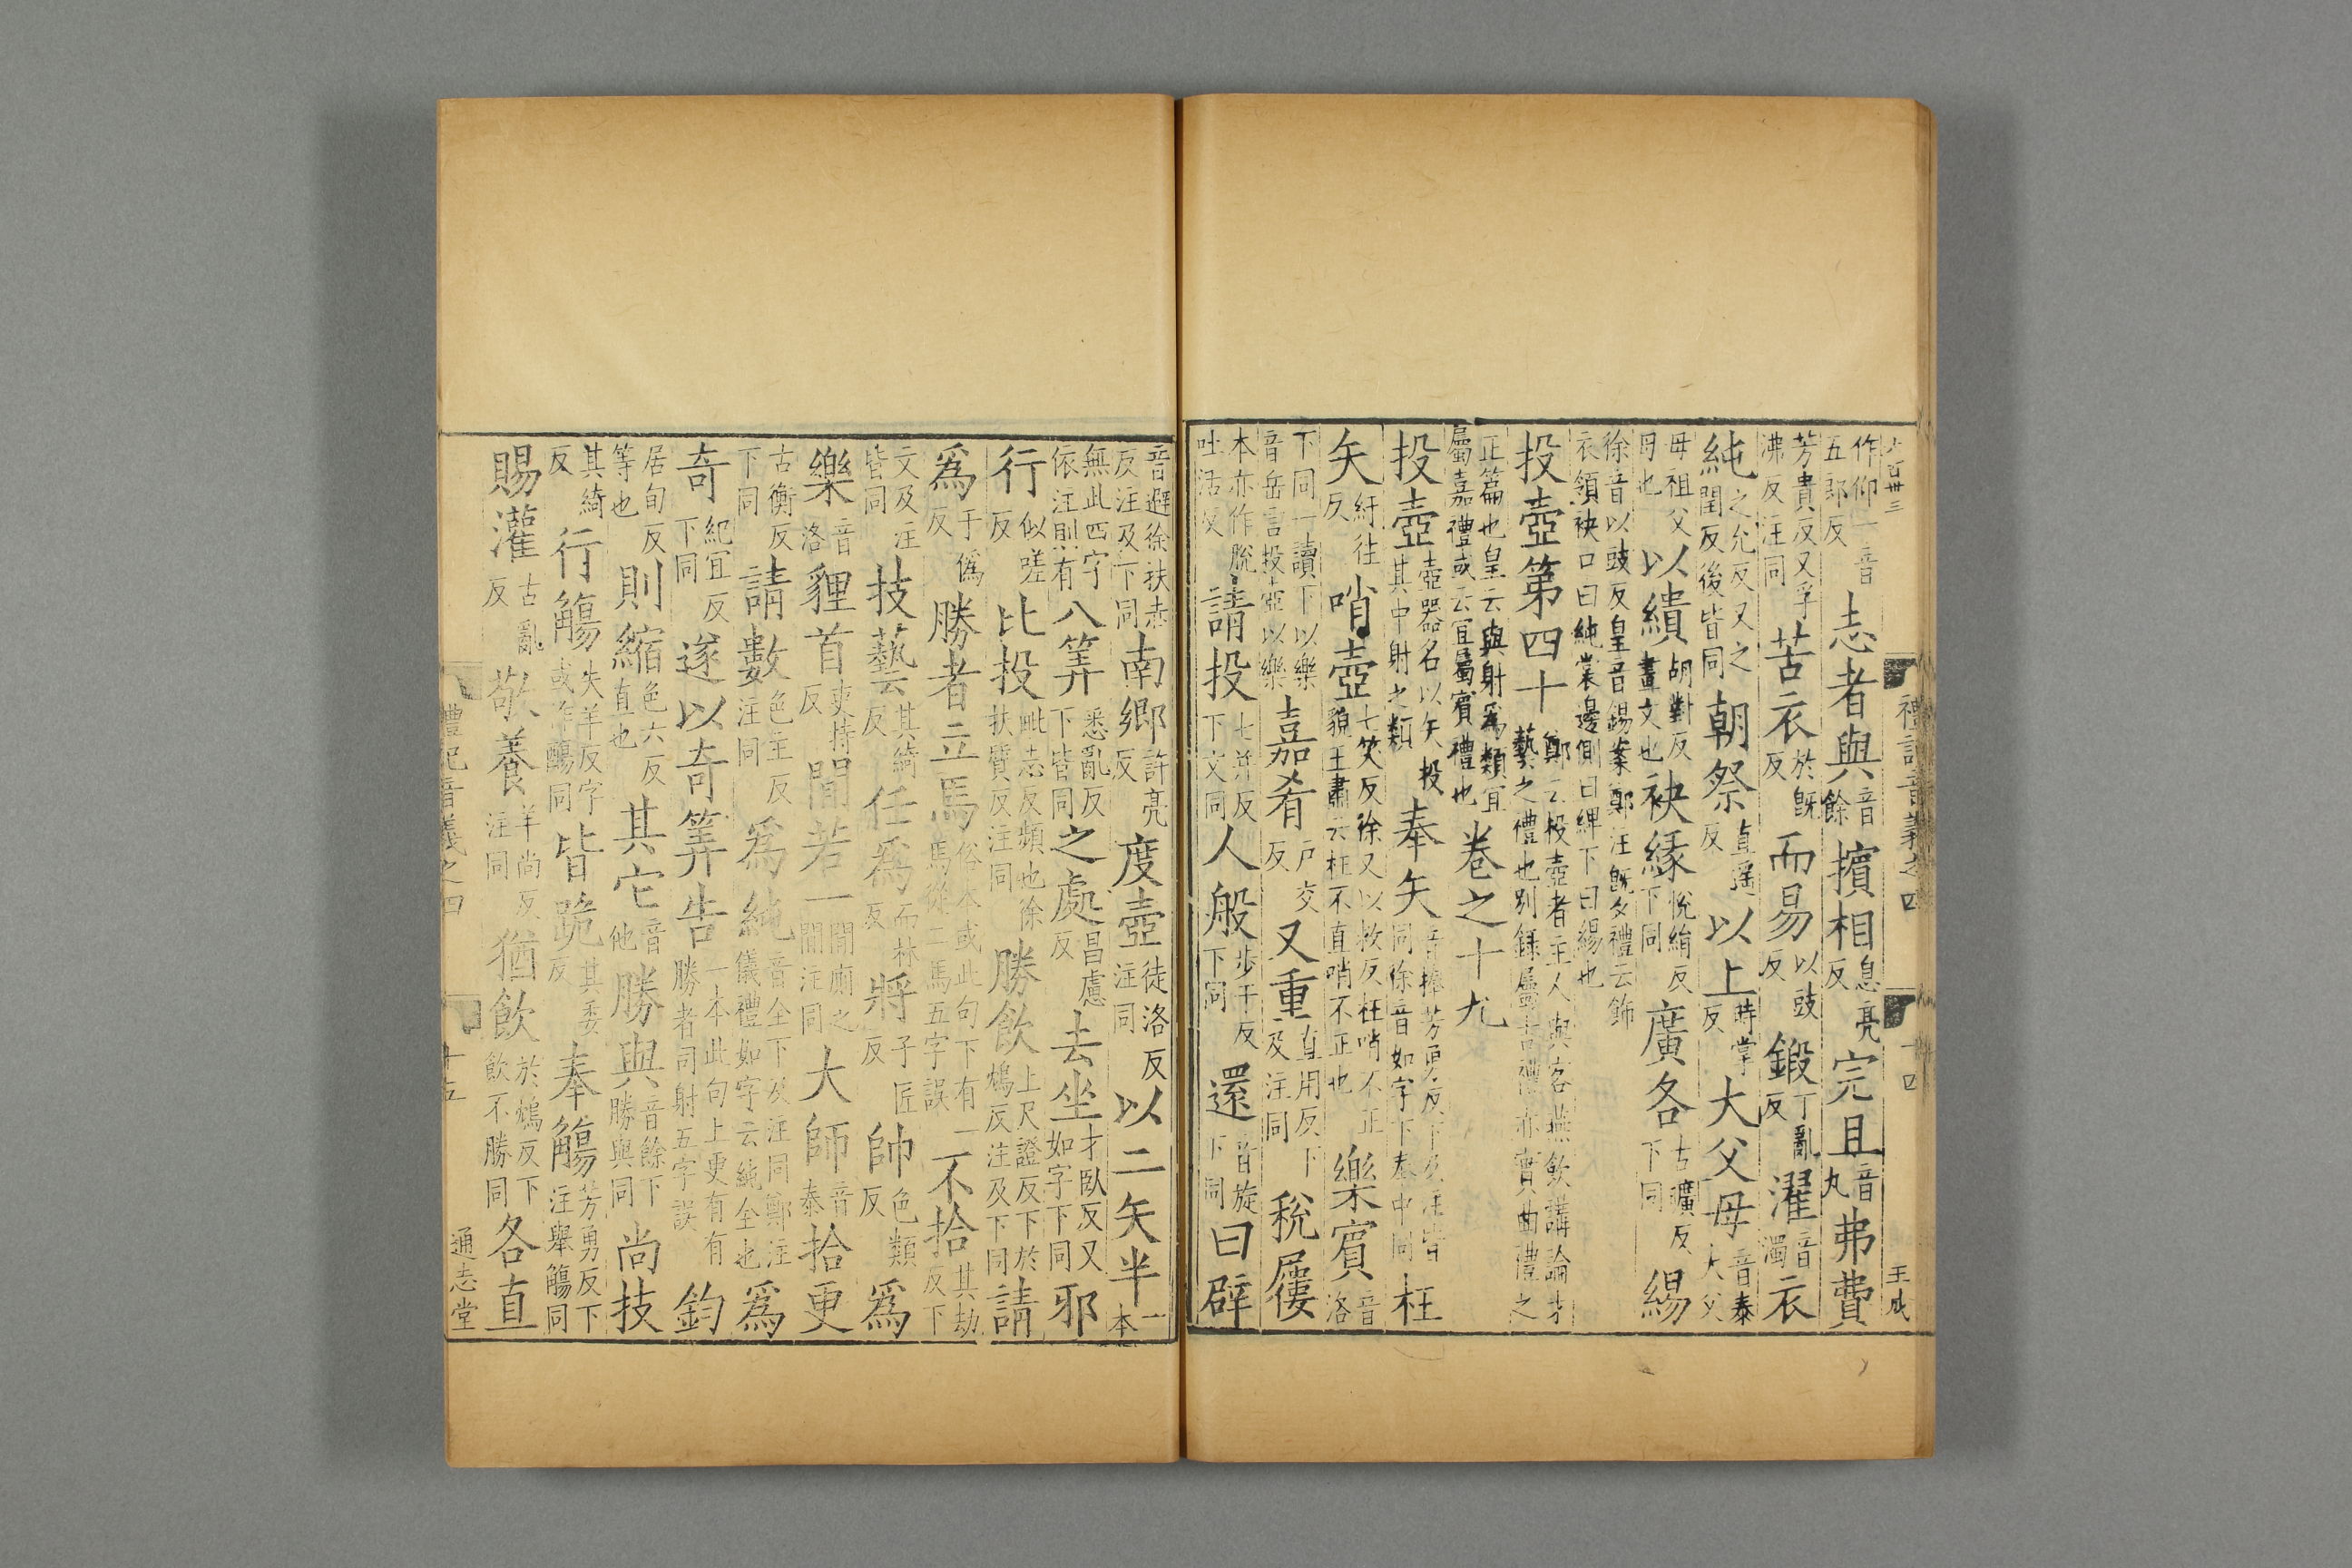 六百卅三 禮記音義之四 十四 王成
作仰一音五郎反志者與音餘擯相息亮反完且音丸弗費
芳貴反又孚沸反注同苦衣於旣反而易以豉反鍛丁亂反濯音濁衣
純之允反又之閏反後皆同朝祭直遥反以上時掌反大父母音泰大父
母祖父母也以繢胡對反畫文也袂緣悅絹反下同廣各古曠反下同緆
徐音以豉反皇音錫案鄭注旣夕禮云飾衣領袂口曰純裳邊側曰綼下曰緆也
投壺第四十鄭云投壺者主人與客燕飲講論才藝之禮也别録屬吉禮亦實曲禮之
正篇也皇云與射爲類宜屬嘉禮或云宜屬賓禮也卷之十九
投壺壺器名以矢投其中射之類奉矢音捧芳勇反下及注皆同徐音如字下奉中同枉
矢紆往反哨壺七笑反徐又以救反枉哨不正貌王肅云枉不直哨不正也樂賓音洛
下同一讀下以樂音岳言投壺以樂嘉肴戶交反又重直用反下及注同稅屨
本亦作脫吐活反請投七井反下文同人般步干反下同還音旋下同曰辟
音避徐扶赤反注及下同南鄉許亮反度壺徒洛反注同以二矢半一本
無此四字依注則有八筭悉亂反下皆同之處昌慮反去坐才臥反又如字下同邪
行似嗟反比投毗志反頻也徐扶質反注同勝飲上尺證反下於鴆反注及下同請
爲于僞反勝者立馬俗本或此句下有一馬從二馬五字誤不拾其劫反下
文及注皆同技藝其綺反任爲而林反將子匠反帥色類反爲
樂音洛貍首吏持反閒若一閒廁之閒注同大師音泰拾更
古衡反下同請數色主反注同爲純音全下及注同鄭注儀禮如字云純全也爲
奇紀宜反下同遂以奇筭告一本此句上更有有勝者司射五字誤鈞
居旬反等也則縮色六反直也其它音他勝與音餘下勝與同尚技
其綺反行觴失羊反字或作醻同皆跪其委反奉觴芳勇反下注舉觴同
賜灌古亂反敬養羊尚反注同猶飲於鴆反下飲不勝同各直
禮記音義之四 十五 通志堂